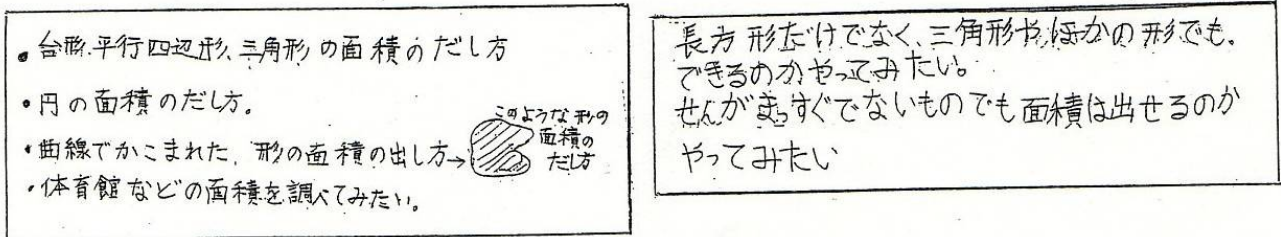 ・台形、平行四辺形、三角形の面積のだし方
・円の面積のだし方。
・曲線でかこまれた、形の面積の出し方→
このような形の
面積の
だし方
・体育館などの面積を調べてみたい。
長方形だけでなく、三角形や、ほかの形でも、
できるのかやってみたい。
せんがまっすぐでないものでも面積は出せるのか
やってみたい